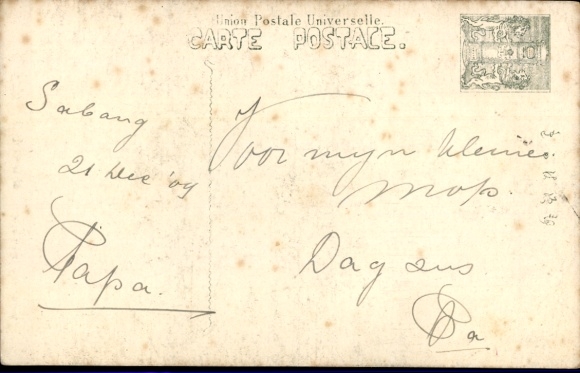 Union Postale Universelle.
CARTE POSTALE.
Sabang
21 Dec '09
Papa.
Voor mijn kleine
mop.
Dag sus
Pa